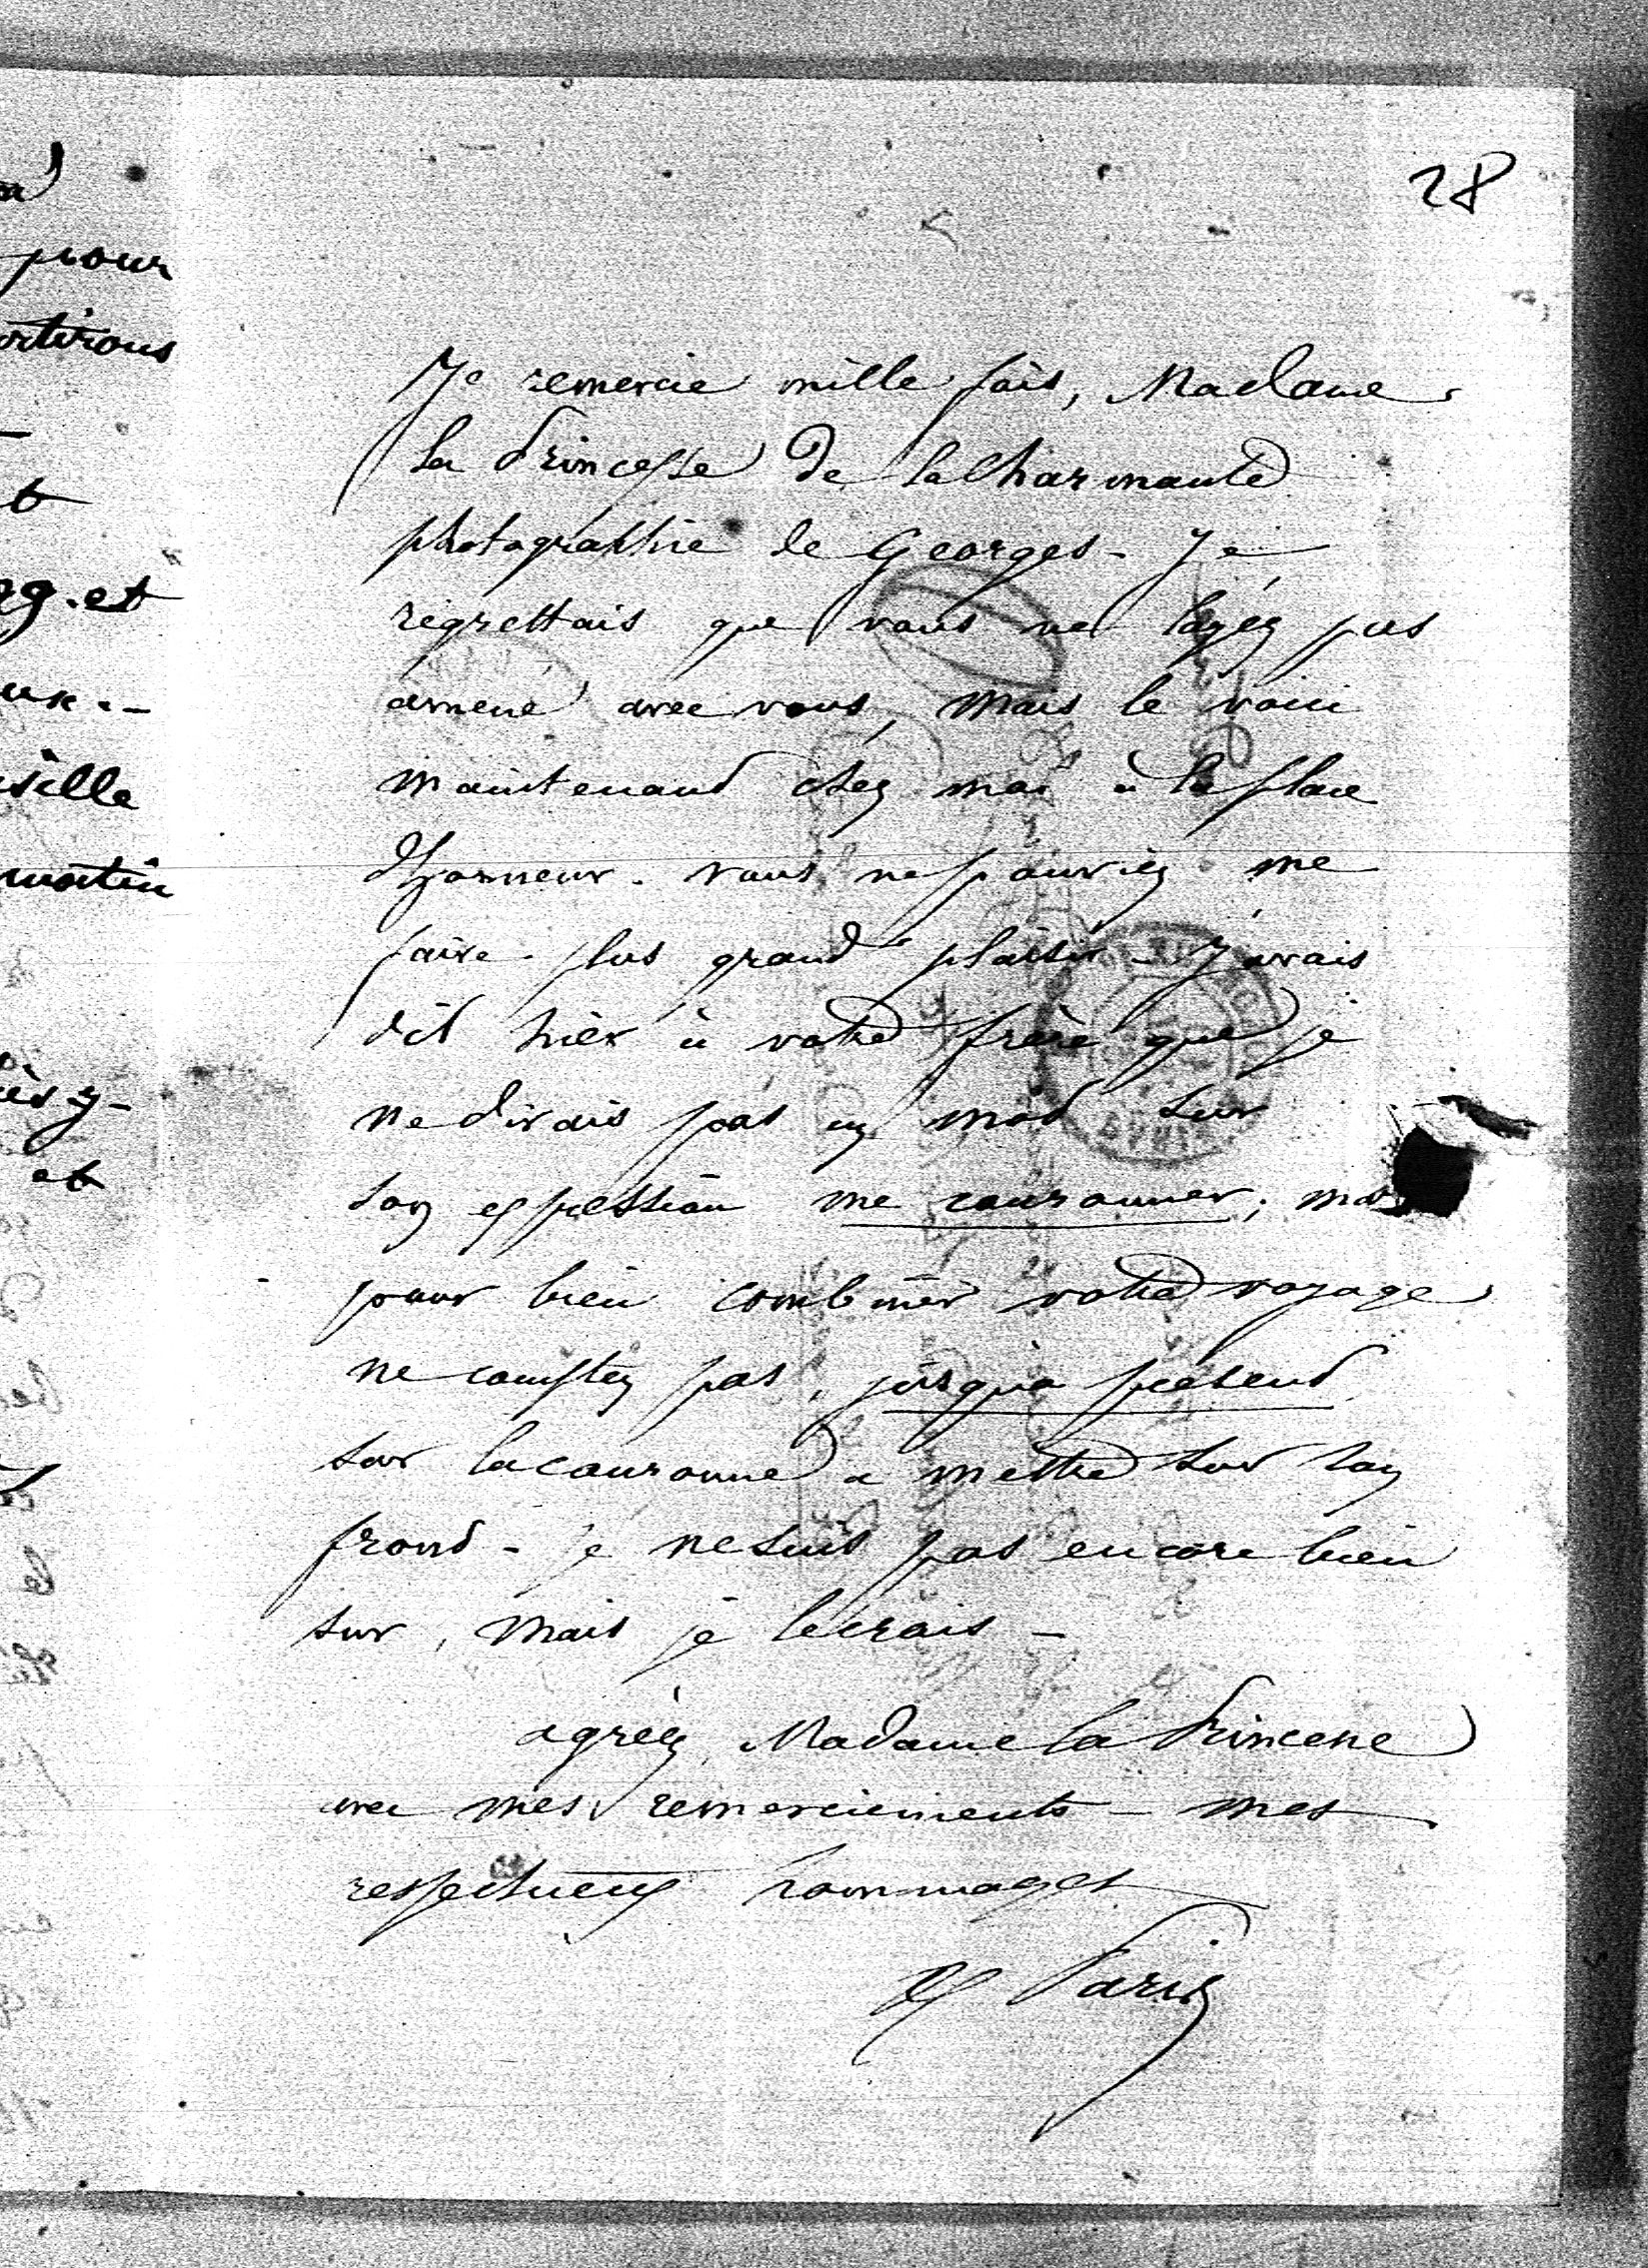 28
Je remercie mille fois, Madame
la Princesse de la charmante
photographie de Georges - Je
regrettais que vous ne l'ayéz pas
amené avec vous, mais le voici
maintenant chéz moi à la place
d'honneur. vous ne pouviéz me
faire plus grand plaisir - J'avais
dit hier à votre frère que je
ne dirais pas un mot sur
son expression me couronner; mais
pour bien combiner votre voyage
ne comptéz pas, jusqu'à présent
sur la couronne a mettre sur son
front - je ne suis pas encore bien
sur, mais je le crois -
agréèz, Madame la Princesse
avec mes remerciements - mes
respectueux hommages
Paris
pour
et
matin
et